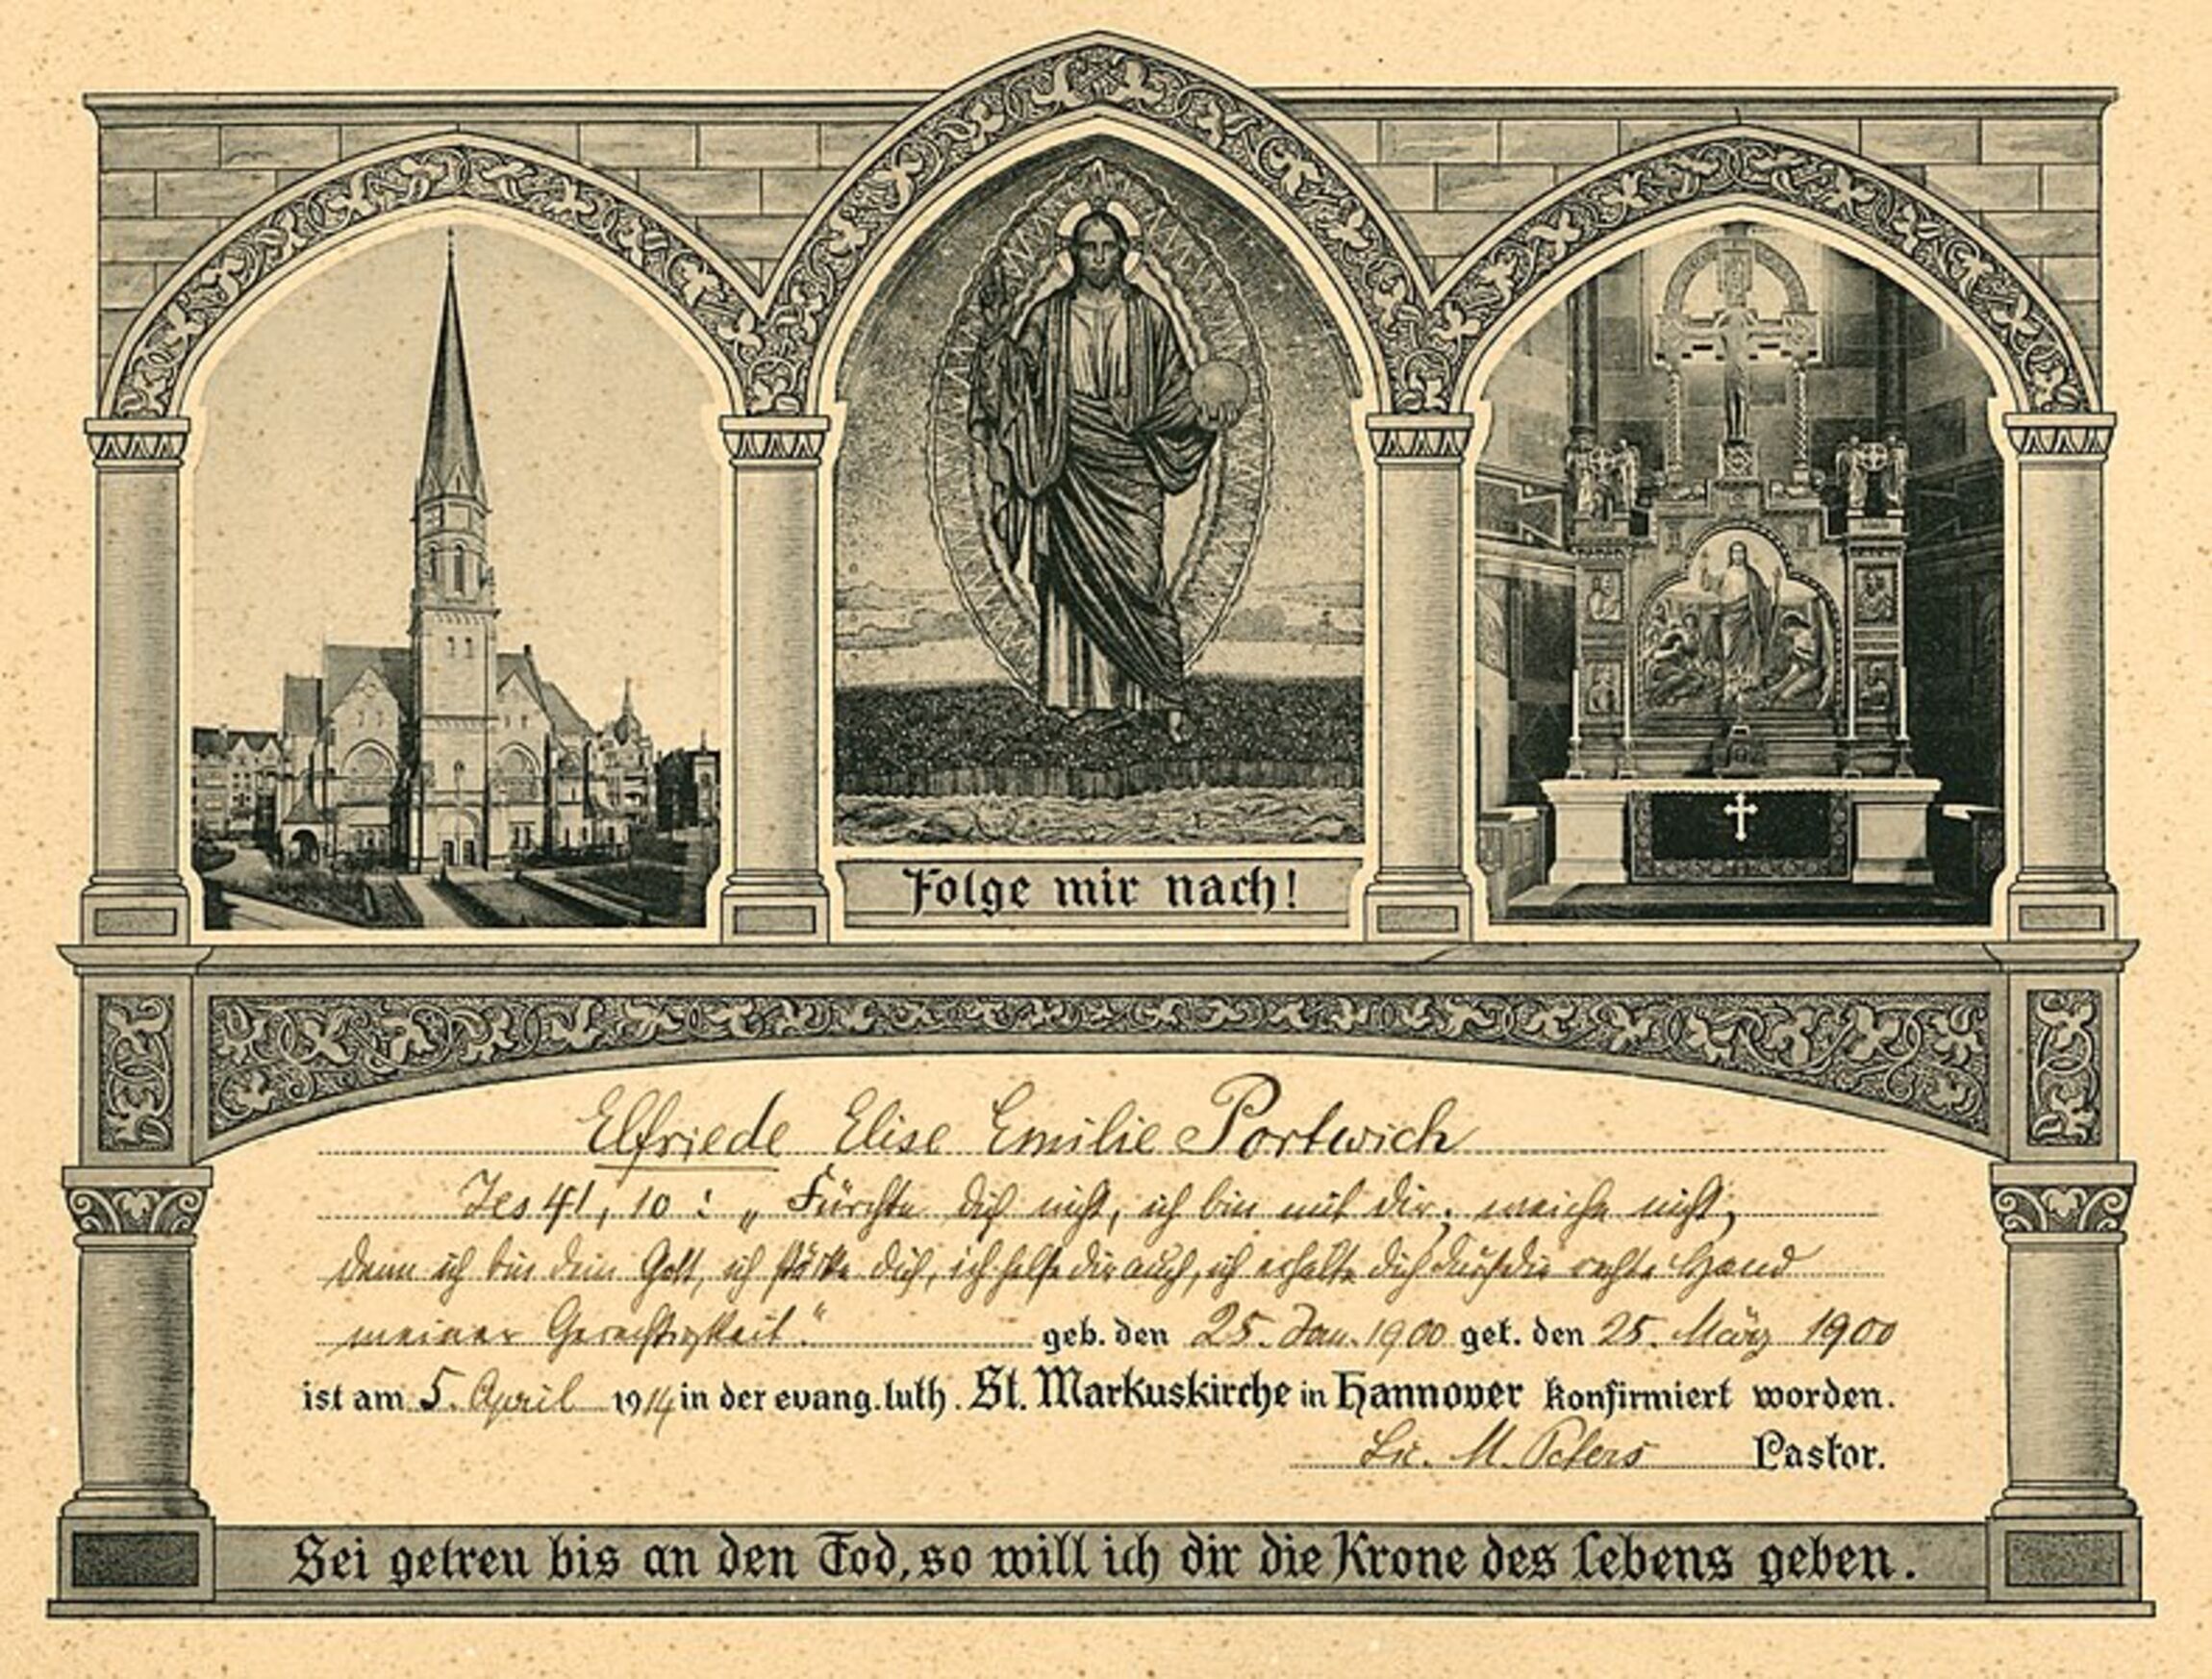 Folge mir nach!
Elfriede Elise Emilie Portwich
Jes 41, 10: „Fürchte dich nicht, ich bin mit dir; weiche nicht,
denn ich bin dein Gott, ich stärke dich, ich helfe dir auch, ich erhalte dich durch die rechte Hand
meiner Gerechtigkeit.“ geb. den 25. Jan. 1900 get. den 25. März 1900
ist am 5. April 1914 in der evang. luth. St. Markuskirche in Hannover konfirmiert worden.
Lic. M. Peters Pastor.
Sei getreu bis an den Tod, so will ich dir die Krone des Lebens geben.